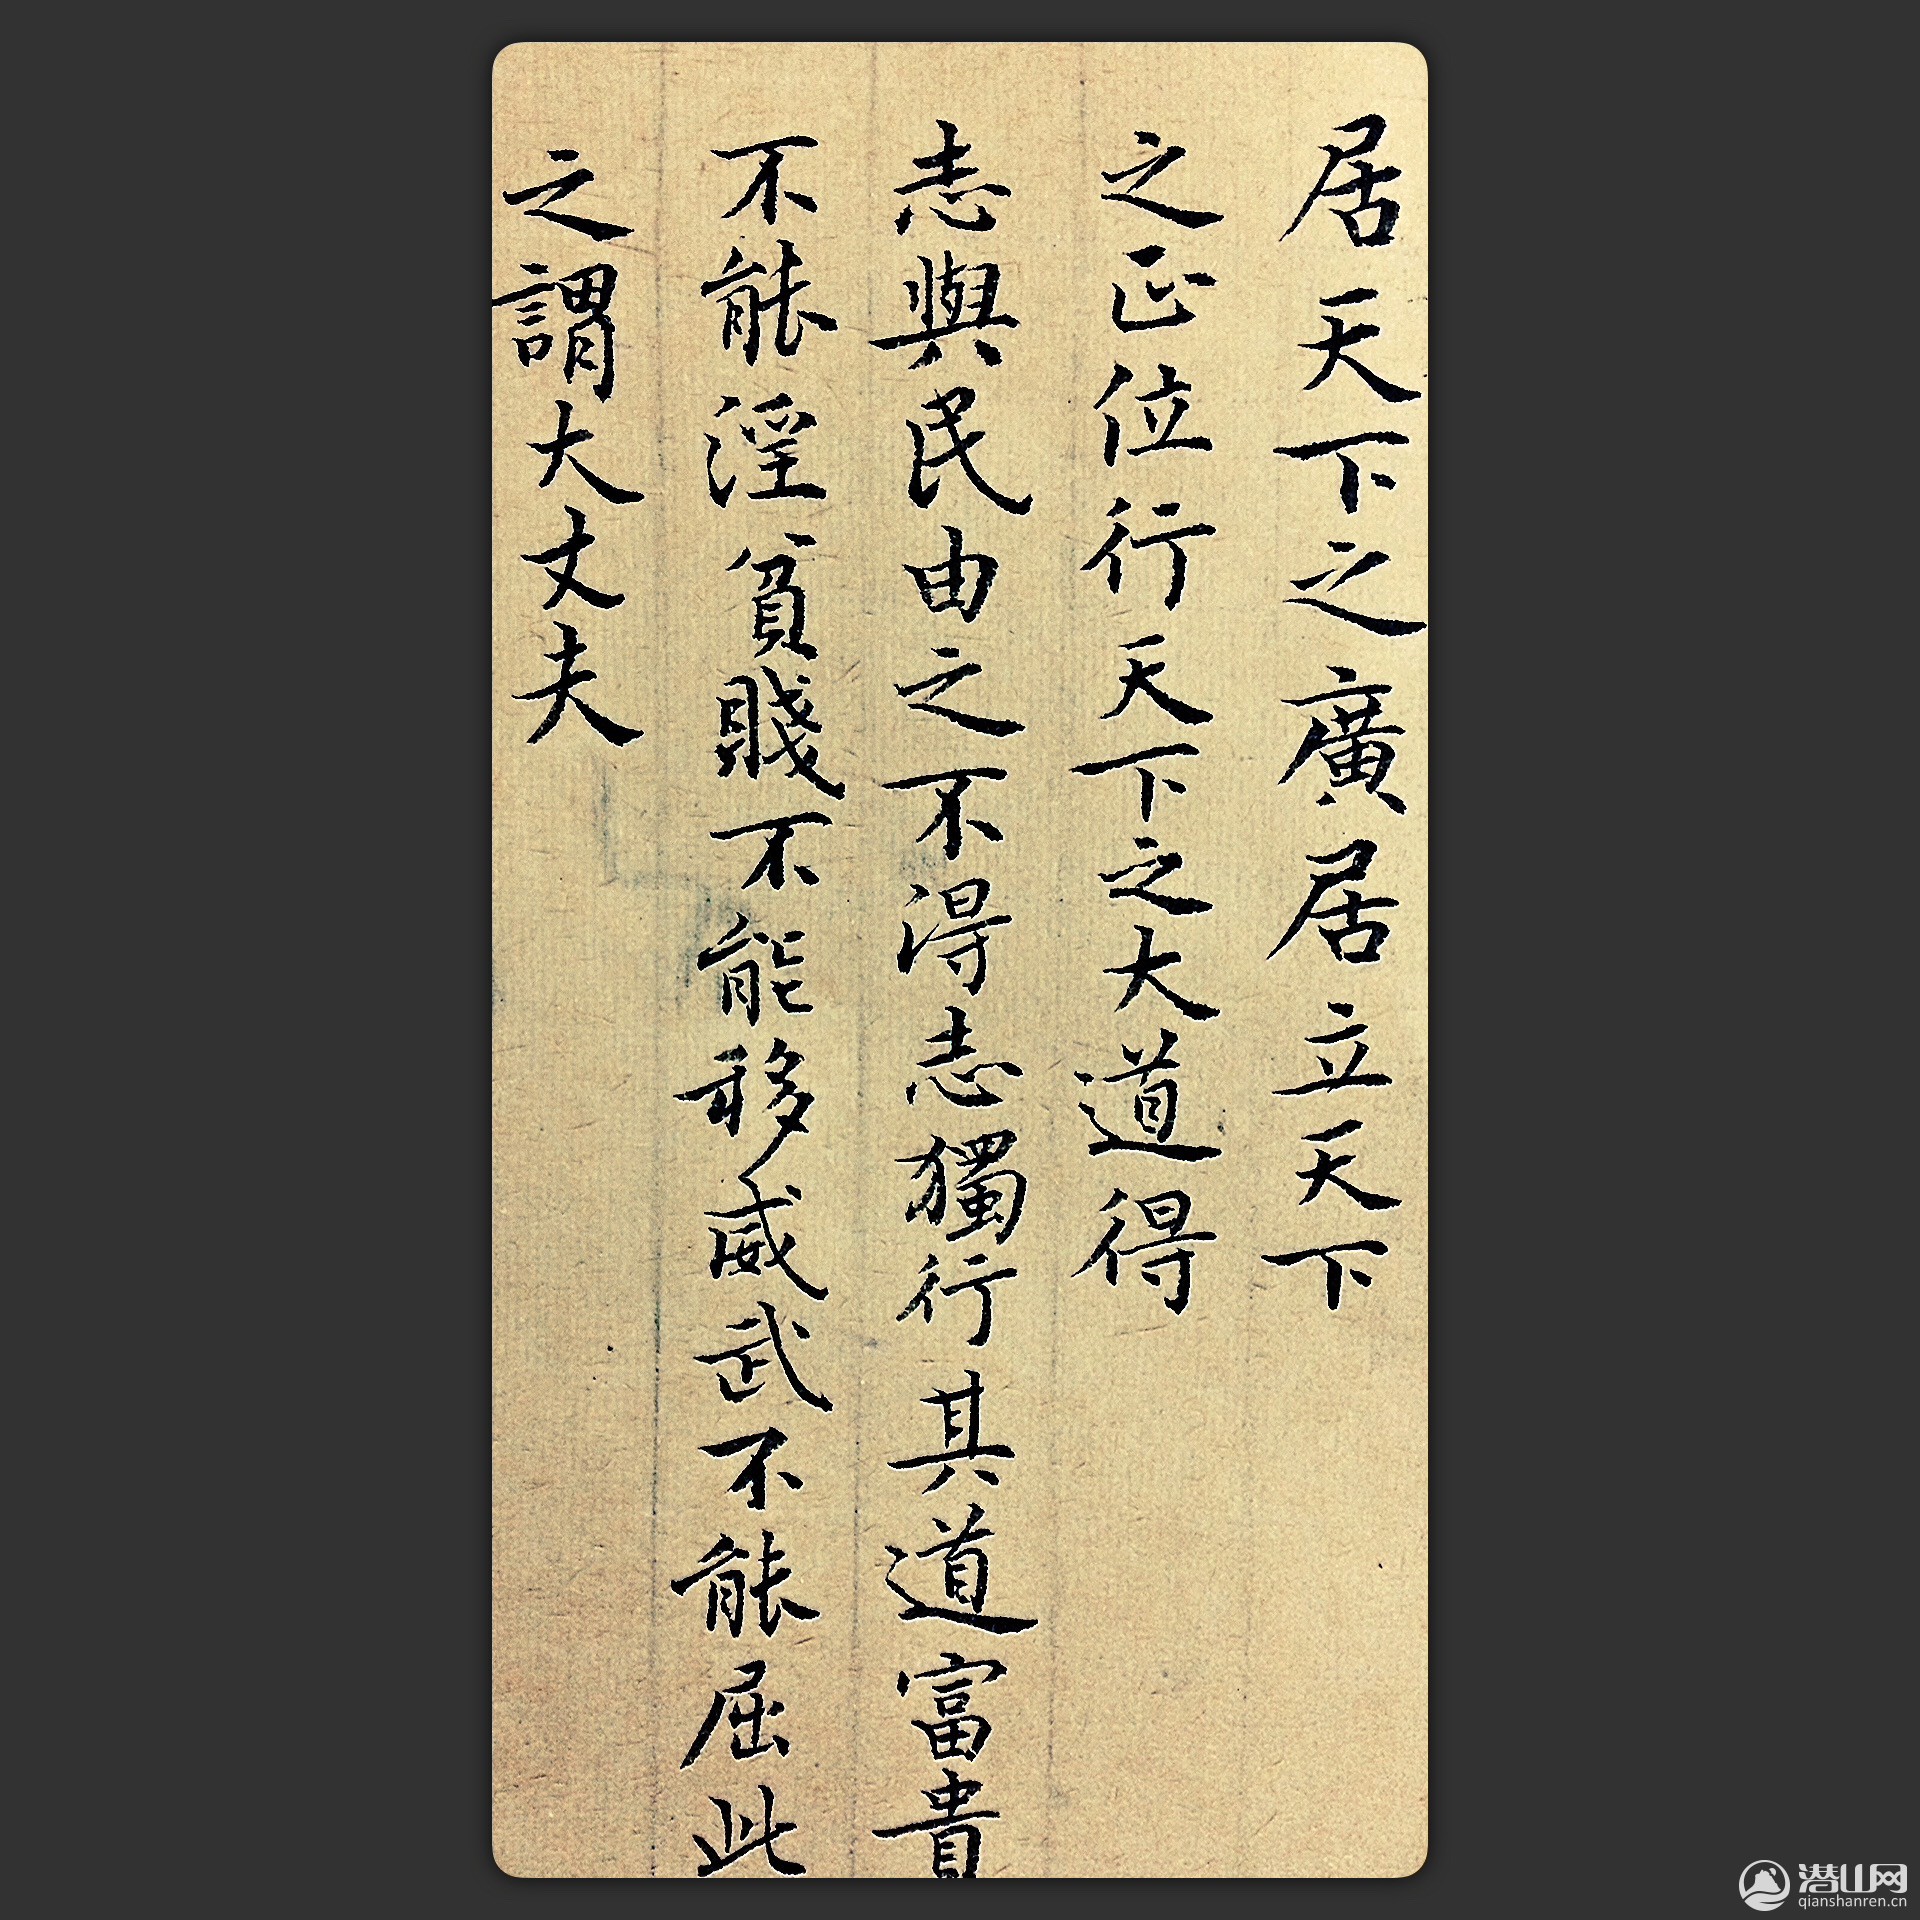 居天下之廣居立天下
之正位行天下之大道得
志與民由之不得志獨行其道富貴
不能淫貧賤不能移威武不能屈此
之謂大丈夫
潜山网
qianshanren.cn